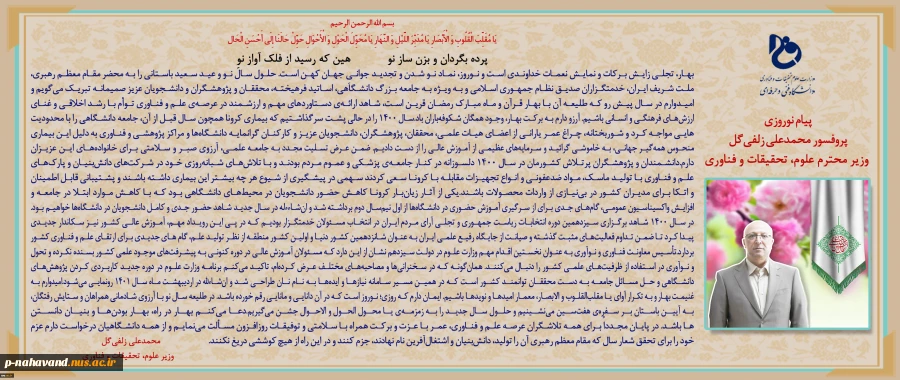 بسم الله الرحمن الرحیم
یَا مُقَلِّبَ الْقُلُوبِ وَ الْأَبْصَارِ یَا مُدَبِّرَ اللَّیْلِ وَ النَّهَارِ یَا مُحَوِّلَ الْحَوْلِ وَ الْأَحْوَالِ حَوِّلْ حَالَنَا إِلَى أَحْسَنِ الْحَالِ
پرده بگردان و بزن ساز نو هین که رسید از فلک آواز نو
وزارت علوم، تحقیقات و فناوری
دانشگاه فنی و حرفه‌ای
پیام نوروزی
پروفسور محمدعلی زلفی گل
وزیر محترم علوم، تحقیقات و فناوری
بهار، تجلی زایش برکات و نمایش نعمات خداوندی است و نوروز، نماد نو شدن و تجدید جوانی جهان کهن است. حلول سال نو و عید سعید باستانی را به محضر مقام معظم رهبری،
ملت شریف ایران، خدمتگزاران صدیق نظام جمهوری اسلامی و به ویژه به جامعه بزرگ دانشگاهی، اساتید فرهیخته، محققان و پژوهشگران و دانشجویان عزیز صمیمانه تبریک می‌گویم و
امیدوارم در سال پیش رو که طلیعه آن با بهار قرآن و ماه مبارک رمضان قرین است، شاهد ارائه‌ی دستاوردهای مهم و ارزشمند در عرصه‌ی علم و فناوری توأم با رشد اخلاقی و غنای
ارزش‌های فرهنگی و انسانی باشیم. آرزو دارم به برکت بهار، وجود همگان شکوفه‌باران باد. سال ۱۴۰۰ را در حالی پشت سر گذاشتیم که بیماری کرونا همچون سال قبل از آن، جامعه دانشگاهی را با محدودیت
هایی مواجه کرد و شوربختانه، چراغ عمر یارانی از اعضای هیات علمی، محققان، پژوهشگران، دانشجویان عزیز و کارکنان گرانمایه دانشگاه‌ها و مراکز پژوهشی و فناوری به دلیل این بیماری
منحوس همه‌گیر جهانی، به خاموشی گرائید و سرمایه‌های عظیمی از آموزش عالی را از دست دادیم. ضمن عرض تسلیت مجدد به جامعه علمی، آرزوی صبر و سلامتی برای خانواده‌های این عزیزان
دارم. دانشمندان و پژوهشگران پرتلاش کشورمان در سال ۱۴۰۰ دلسوزانه در کنار جامعه‌ی پزشکی و عموم مردم بودند و با تلاش‌های شبانه‌روزی خود در شرکت‌های دانش‌بنیان و پارک‌های
علم و فناوری با تولید ماسک، مواد ضدعفونی و انواع تجهیزات مقابله با کرونا سعی کردند سهمی در پیشگیری از شیوع هر چه بیشتر این بیماری داشته باشند و پشتیبانی قابل اطمینان
و اتکا برای مدیران کشور در بی‌نیازی از واردات محصولات باشند. یکی از آثار زیان‌بار کرونا کاهش حضور دانشجویان در محیط‌های دانشگاهی بود که با کاهش موارد ابتلا در جامعه و
افزایش واکسیناسیون عمومی، گام‌های جدی برای از سرگیری آموزش حضوری در دانشگاه‌ها از اول نیم‌سال دوم برداشته شد و ان‌شاءالله در سال جدید شاهد حضور جدی و کامل دانشجویان در دانشگاه‌ها خواهیم بود.
در سال ۱۴۰۰ شاهد برگزاری سیزدهمین دوره انتخابات ریاست جمهوری و تجلی آرای مردم ایران در انتخاب مسئولان خدمتگزار بودیم که در پی این رویداد مهم، آموزش عالی کشور نیز سکاندار جدیدی
پیدا کرد تا ضمن تداوم فعالیت‌های مثبت گذشته و صیانت از جایگاه رفیع علمی ایران به عنوان شانزدهمین کشور دنیا و اولین کشور منطقه از نظر تولید علم، گام های جدیدی برای ارتقای علم و فناوری کشور
بردارد. تأسیس معاونت فناوری و نوآوری به عنوان نخستین اقدام مهم وزارت علوم در دولت سیزدهم نشان از این دارد که مسئولان آموزش عالی در دوره کنونی به پیشرفت‌های موجود علمی کشور بسنده نکرده و تحول
و نوآوری در استفاده از ظرفیت‌های علمی کشور را دنبال می‌کنند. همان‌گونه که در سخنرانی‌ها و مصاحبه‌های مختلف عرض کرده‌ام، تاکید می‌کنم برنامه وزارت علوم در دوره جدید کاربردی کردن پژوهش‌های
دانشگاهی و حل مسائل جامعه به دست محققان توانمند کشور است که در همین مسیر سامانه نیازها و ایده‌ها به نام نان طراحی شد و ان‌شاالله در اردیبهشت ماه سال ۱۴۰۱ رونمایی می‌شود. امیدوارم به
غنیمت بهار و به تکرار آوای یا مقلب‌القلوب و الابصار، معمار امیدها و نویدها باشیم. ایمان دارم که روزی؛ نوروز است که در آن دانایی و مانایی رقم خورده باشد. در طلیعه سال نو با آرزوی شادمانی همراهان و ستایش رفتگان،
به آیین باستان بر سفره‌ی هفت‌سین می‌نشینیم و حلول سال جدید را به زمزمه‌ی یا محول الحول و الاحوال جشن می‌گیریم. دعا می‌کنم بهار در راه، بهار بودن‌ها و بنیان دانستن
ها باشد. در پایان مجددا برای همه تلاشگران عرصه علم و فناوری، عمر با عزت و برکت همراه با سلامتی و توفیقات روزافزون مسألت می‌نمایم و از همه دانشگاهیان درخواست دارم عزم
خود را برای تحقق شعار سال که مقام معظم رهبری آن را تولید، دانش‌بنیان و اشتغال‌آفرین نام نهادند، جزم کنند و در این راه از هیچ کوششی دریغ نکنند.
محمدعلی زلفی گل
وزیر علوم، تحقیقات و فناوری
p-nahavand.nus.ac.ir